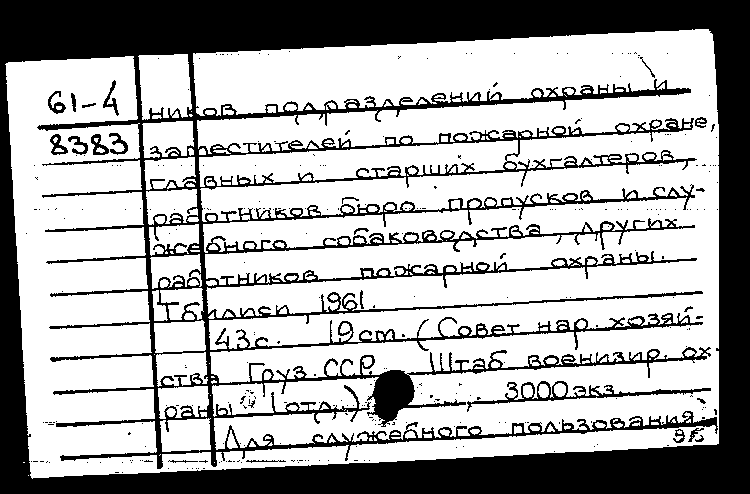 61-4 ников подразделений охраны и
8383 заместителей по пожарной охране,
главных и старших бухгалтеров,
работников бюро пропусков и слу-
жебного собаководства, других
работников пожарной охраны.
Тбилиси, 1961.
43с. 19см. (Совет нар. хозяй-
ства Груз. ССР. Штаб военизир. ох-
раны 1 отд.) 3000 экз.
Для служебного пользования.